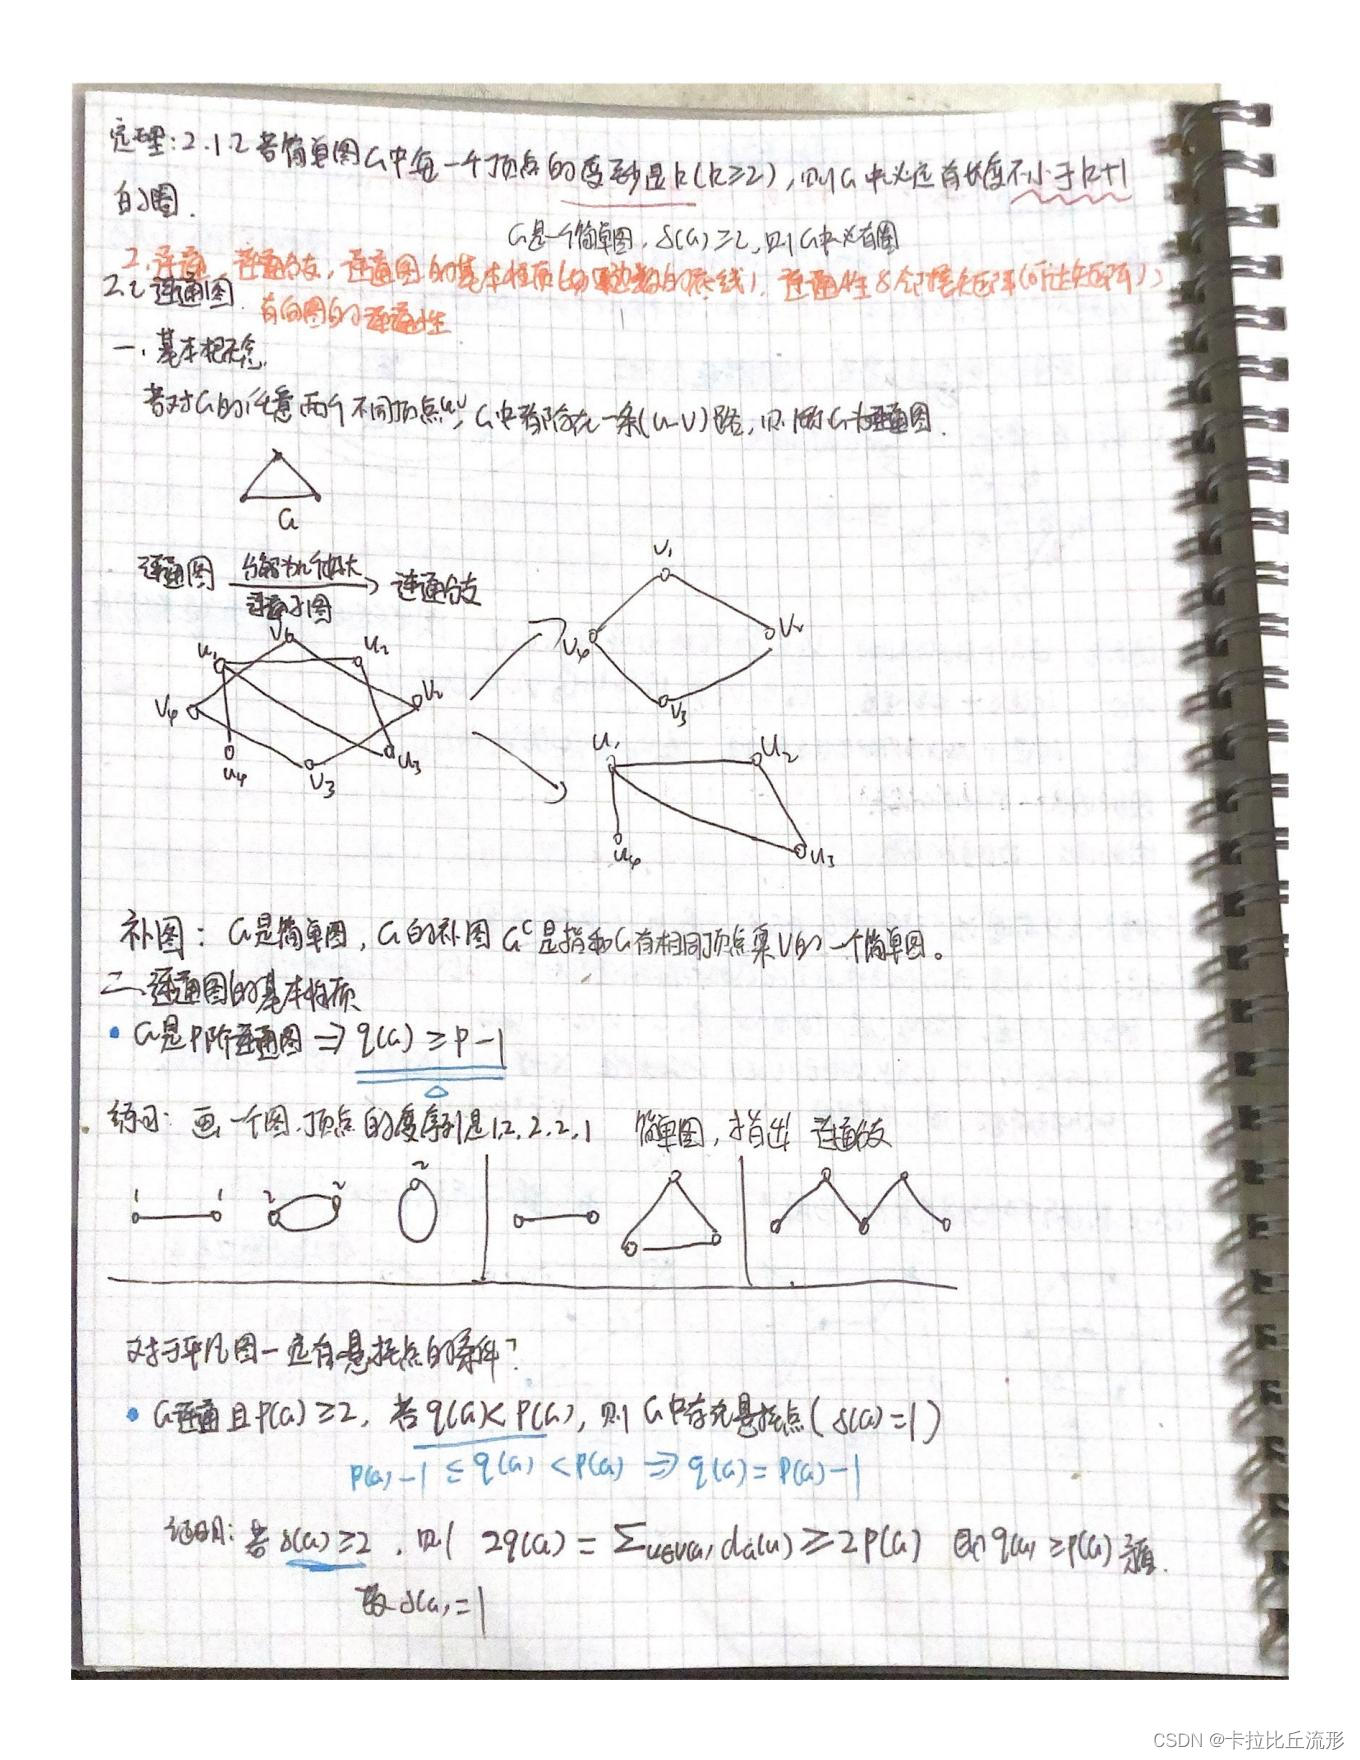 定理:2.1.2 若简单图G中每一个顶点的度至少是k(k≥2),则G中必定有长度不小于k+1
的圈.
G是一个简单图,δ(G)≥2,则G中必有圈
2.连通,连通分支,连通图的基本性质(如边数的底线).连通性&邻接矩阵(可达矩阵)
2.2 连通图.
有向图的连通性
一.基本概念.
若对G的任意两个不同顶点u,v,G中都存在一条(u-v)路,则称G为连通图.
G
连通图 分解为几个极大 连通分支
连通子图
V₁
V₆ u₂
u₁
V₂
V₄ V₂
V₄
u₄ V₃ u₃
V₃
u₁ u₂
u₄ u₃
补图:G是简单图,G的补图Gᶜ是指和G有相同顶点集V的一个简单图。
二.连通图的基本性质
• G是P阶连通图⇒q(G)≥p-1
练习:画一个图.顶点的度序列是1,2,2,2,1 简单图,指出连通分支
1 1 2 2 2
对于平凡图一定有悬挂点的条件?
• G连通且p(G)≥2,若q(G)<P(G),则G中存在悬挂点(δ(G)=1)
P(G)-1≤q(G)<P(G)⇒q(G)=P(G)-1
证明:若δ(G)≥2.则 2q(G)=∑u∈V(G) dG(u)≥2P(G) 即q(G)≥p(G)矛盾.
故δ(G)=1
CSDN @卡拉比丘流形